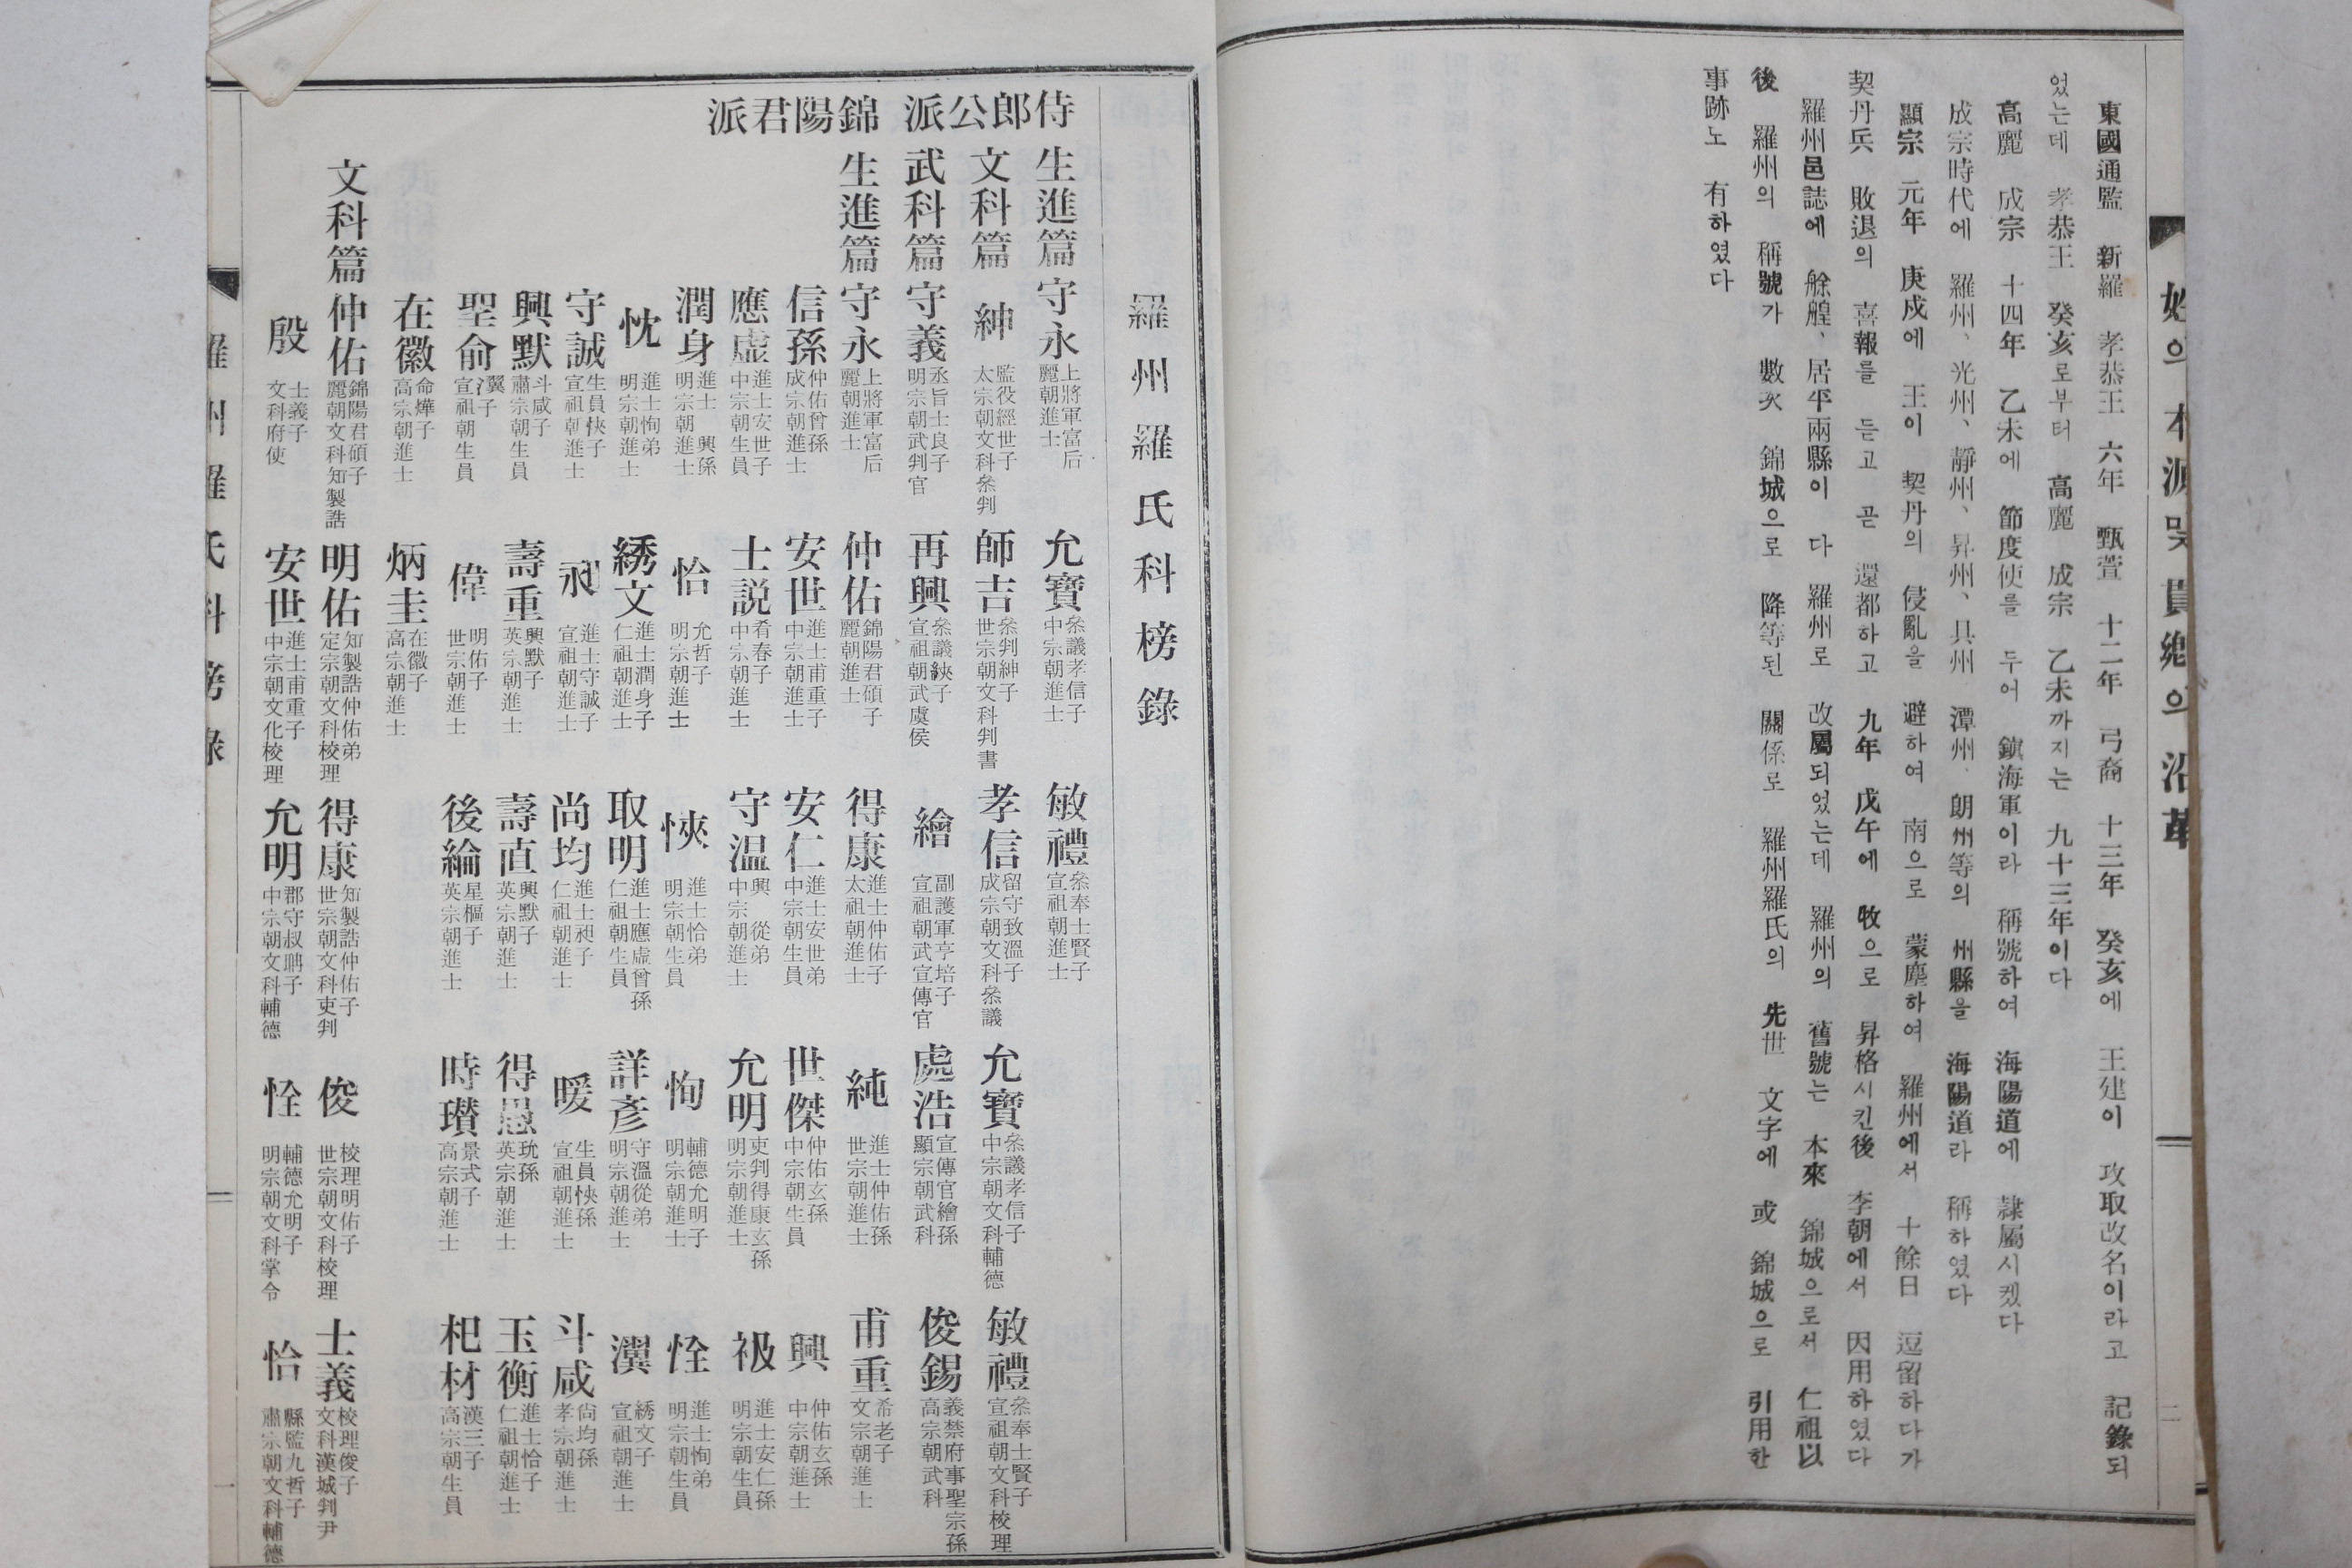 姓의 本源및 貫鄕의 沿革
二
東國通監 新羅 孝恭王 六年 甄萱 十二年 弓裔 十三年 癸亥에 王建이 攻取改名이라고 記錄되
었는데 孝恭王 癸亥로부터 高麗 成宗 乙未까지는 九十三年이다
高麗 成宗 十四年 乙未에 節度使를 두어 鎭海軍이라 稱號하여 海陽道에 隷屬시켰다
成宗時代에 羅州、光州、靜州、昇州、具州 潭州、朗州等의 州縣을 海陽道라 稱하였다
顯宗 元年 庚戌에 王이 契丹의 侵亂을 避하여 南으로 蒙塵하여 羅州에서 十餘日 逗留하다가
契丹兵 敗退의 喜報를 듣고 곧 還都하고 九年 戊午에 牧으로 昇格시킨後 李朝에서 因用하였다
羅州邑誌에 艅艎、居平兩縣이 다 羅州로 改屬되었는데 羅州의 舊號는 本來 錦城으로서 仁祖以
後 羅州의 稱號가 數次 錦城으로 降等된 關係로 羅州羅氏의 先世 文字에 或 錦城으로 引用한
事跡도 有하였다
羅州羅氏科榜錄
侍郎公派
生進篇
守永 上將軍富后 麗朝進士
允寶 叅議孝信子 中宗朝進士
敏禮 叅奉士賢子 宣祖朝進士
文科篇
紳 監役經世子 太宗朝文科叅判
師吉 叅判紳子 世宗朝文科判書
孝信 留守致溫子 成宗朝文科叅議
允寶 叅議孝信子 中宗朝文科輔德
敏禮 叅奉士賢子 宣祖朝文科校理
武科篇
守義 丞旨士良子 明宗朝武判官
再興 叅議綊子 宣祖朝武虞侯
繪 副護軍亨培子 宣祖朝武宣傳官
處浩 宣傳官繪孫 顯宗朝武科
俊錫 義禁府事聖宗孫 高宗朝武科
錦陽君派
生進篇
守永 上將軍富后 麗朝進士
仲佑 錦陽君碩子 麗朝進士
得康 進士仲佑子 太祖朝進士
純 進士仲佑孫 世宗朝進士
甫重 希老子 文宗朝進士
信孫 仲佑曾孫 成宗朝進士
安世 進士甫重子 中宗朝進士
安仁 進士安世弟 中宗朝生員
世傑 仲佑玄孫 中宗朝生員
興 仲佑玄孫 中宗朝進士
應虛 進士安世子 中宗朝生員
士説 肴春子 中宗朝進士
守温 興 從弟 中宗朝進士
允明 吏判得康玄孫 明宗朝進士
衱 進士安仁孫 明宗朝生員
潤身 進士 興孫 明宗朝進士
恰 允哲子 明宗朝進士
悏 進士恰弟 明宗朝生員
恂 輔德允明子 明宗朝進士
恮 進士恂弟 明宗朝生員
忱 進士恂弟 明宗朝進士
綉文 進士潤身子 仁祖朝進士
取明 進士應虛曾孫 仁祖朝生員
詳彥 守溫從弟 明宗朝進士
瀷 綉文子 宣祖朝進士
守誠 生員悏子 宣祖朝進士
進士守誠子 宣祖朝進士
尚均 進士昶子 仁祖朝進士
暖 生員悏孫 宣祖朝進士
斗咸 尙均孫 孝宗朝進士
興默 斗咸子 肅宗朝生員
壽重 興默子 英宗朝進士
壽直 興默子 英宗朝進士
得愚 玧孫 英宗朝進士
玉衡 進士恰子 仁祖朝進士
聖俞 瀷子 宣祖朝生員
偉 明佑子 世宗朝進士
後綸 星樞子 英宗朝進士
時瓚 景式子 高宗朝進士
杞材 漢三子 高宗朝生員
在徽 命燁子 高宗朝進士
炳圭 在徽子 高宗朝進士
文科篇
仲佑 錦陽君碩子 麗朝文科知製誥
明佑 知製誥仲佑弟 定宗朝文科校理
得康 知製誥仲佑子 世宗朝文科吏判
俊 校理明佑子 世宗朝文科校理
士義 校理俊子 文科漢城判尹
殷 士義子 文科府使
安世 進士甫重子 中宗朝文化校理
允明 郡守叔聃子 中宗朝文科輔德
恮 輔德允明子 明宗朝文科掌令
恰 縣監九哲子 肅宗朝文科輔德
羅州羅氏科榜錄
一